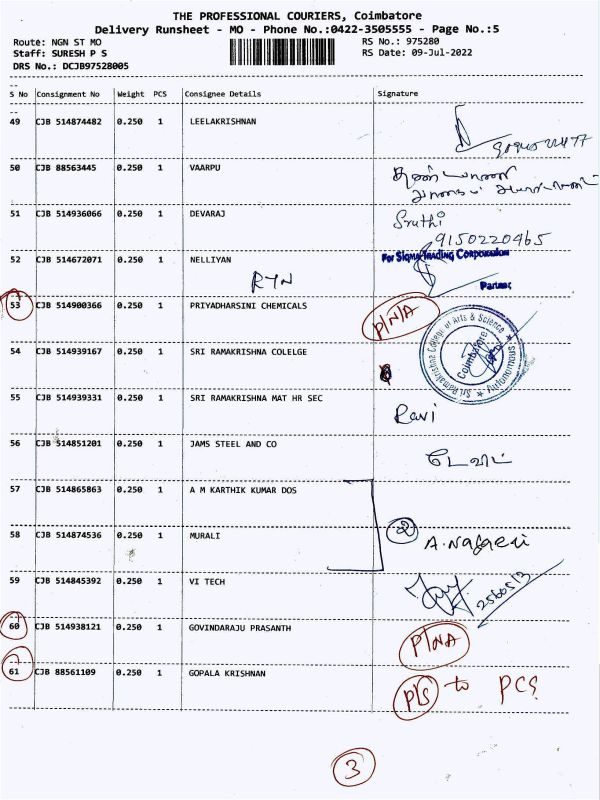 THE PROFESSIONAL COURIERS, Coimbatore
Delivery Runsheet - MO - Phone No.:0422-3505555 - Page No.:5
Route: NGN ST MO RS No.: 975280
Staff: SURESH P S RS Date: 09-Jul-2022
DRS No.: DCJB97528005
S No Consignment No Weight PCS Consignee Details Signature
49 CJB 514874482 0.250 1 LEELAKRISHNAN
50 CJB 88563445 0.250 1 VAARPU
51 CJB 514936066 0.250 1 DEVARAJ Sruthi
9150220465
52 CJB 514672071 0.250 1 NELLIYAN For SIGMA TRADING CORPORATION
RTN Partner
53 CJB 514900366 0.250 1 PRIYADHARSINI CHEMICALS P/N/A
Sri Ramakrishna College of Arts & Science (Autonomous) Coimbatore
54 CJB 514939167 0.250 1 SRI RAMAKRISHNA COLELGE
55 CJB 514939331 0.250 1 SRI RAMAKRISHNA MAT HR SEC Ravi
56 CJB 514851201 0.250 1 JAMS STEEL AND CO டேவிட்
57 CJB 514865863 0.250 1 A M KARTHIK KUMAR DOS
58 CJB 514874536 0.250 1 MURALI 2 A.Nagaraj
59 CJB 514845392 0.250 1 VI TECH
60 CJB 514938121 0.250 1 GOVINDARAJU PRASANTH P/NA
61 CJB 88561109 0.250 1 GOPALA KRISHNAN P/S to PCS
3